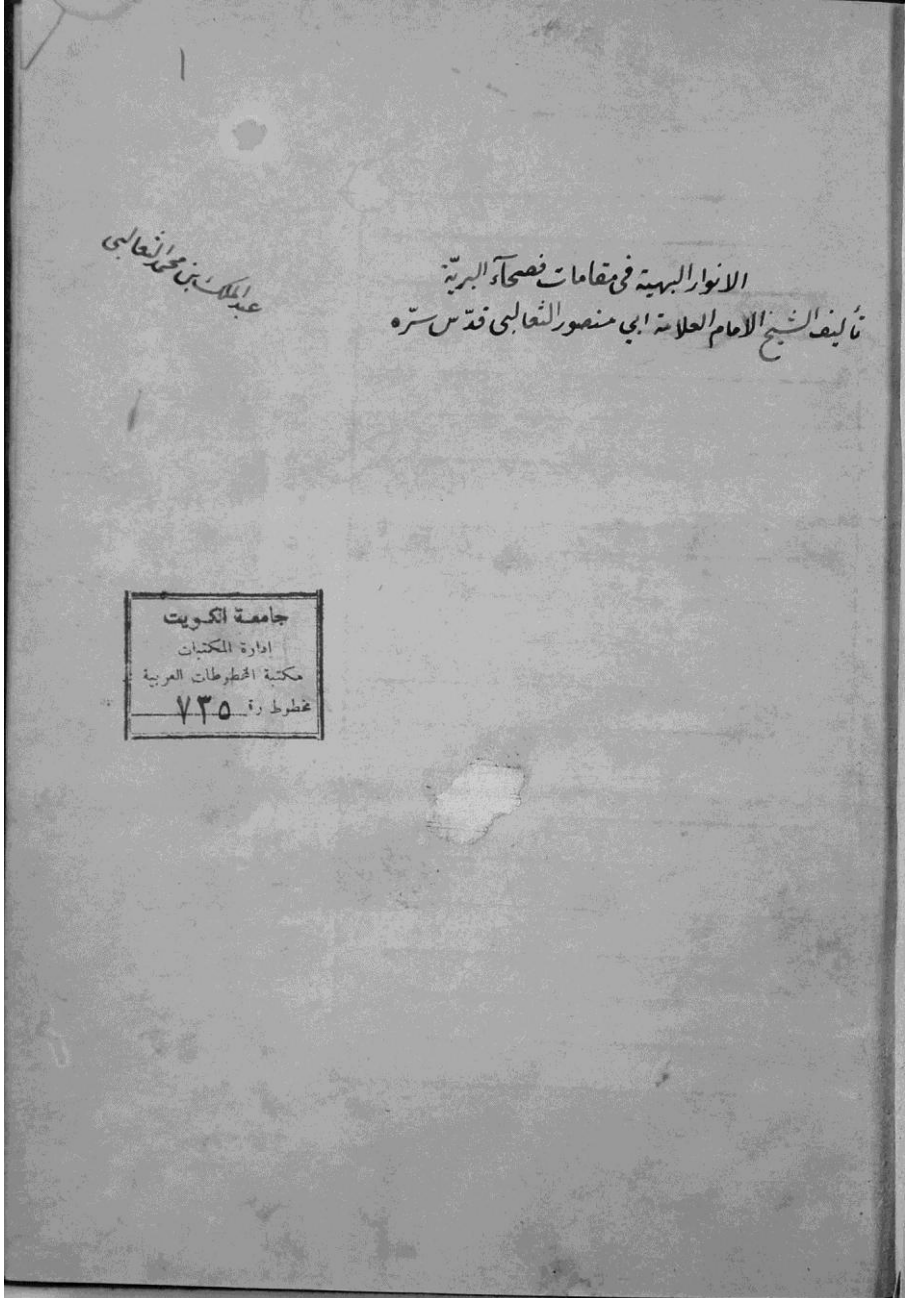 ١
الانوار البهية فى مقامات فصحآء البريّة
تأليف الشيخ الامام العلامة ابي منصور الثعالبى قدّس سرّه
عبد الملك بن محمد الثعالبى
جامعة الكويت
ادارة المكتبات
مكتبة المخطوطات العربية
مخطوط رقم ٧٣٥